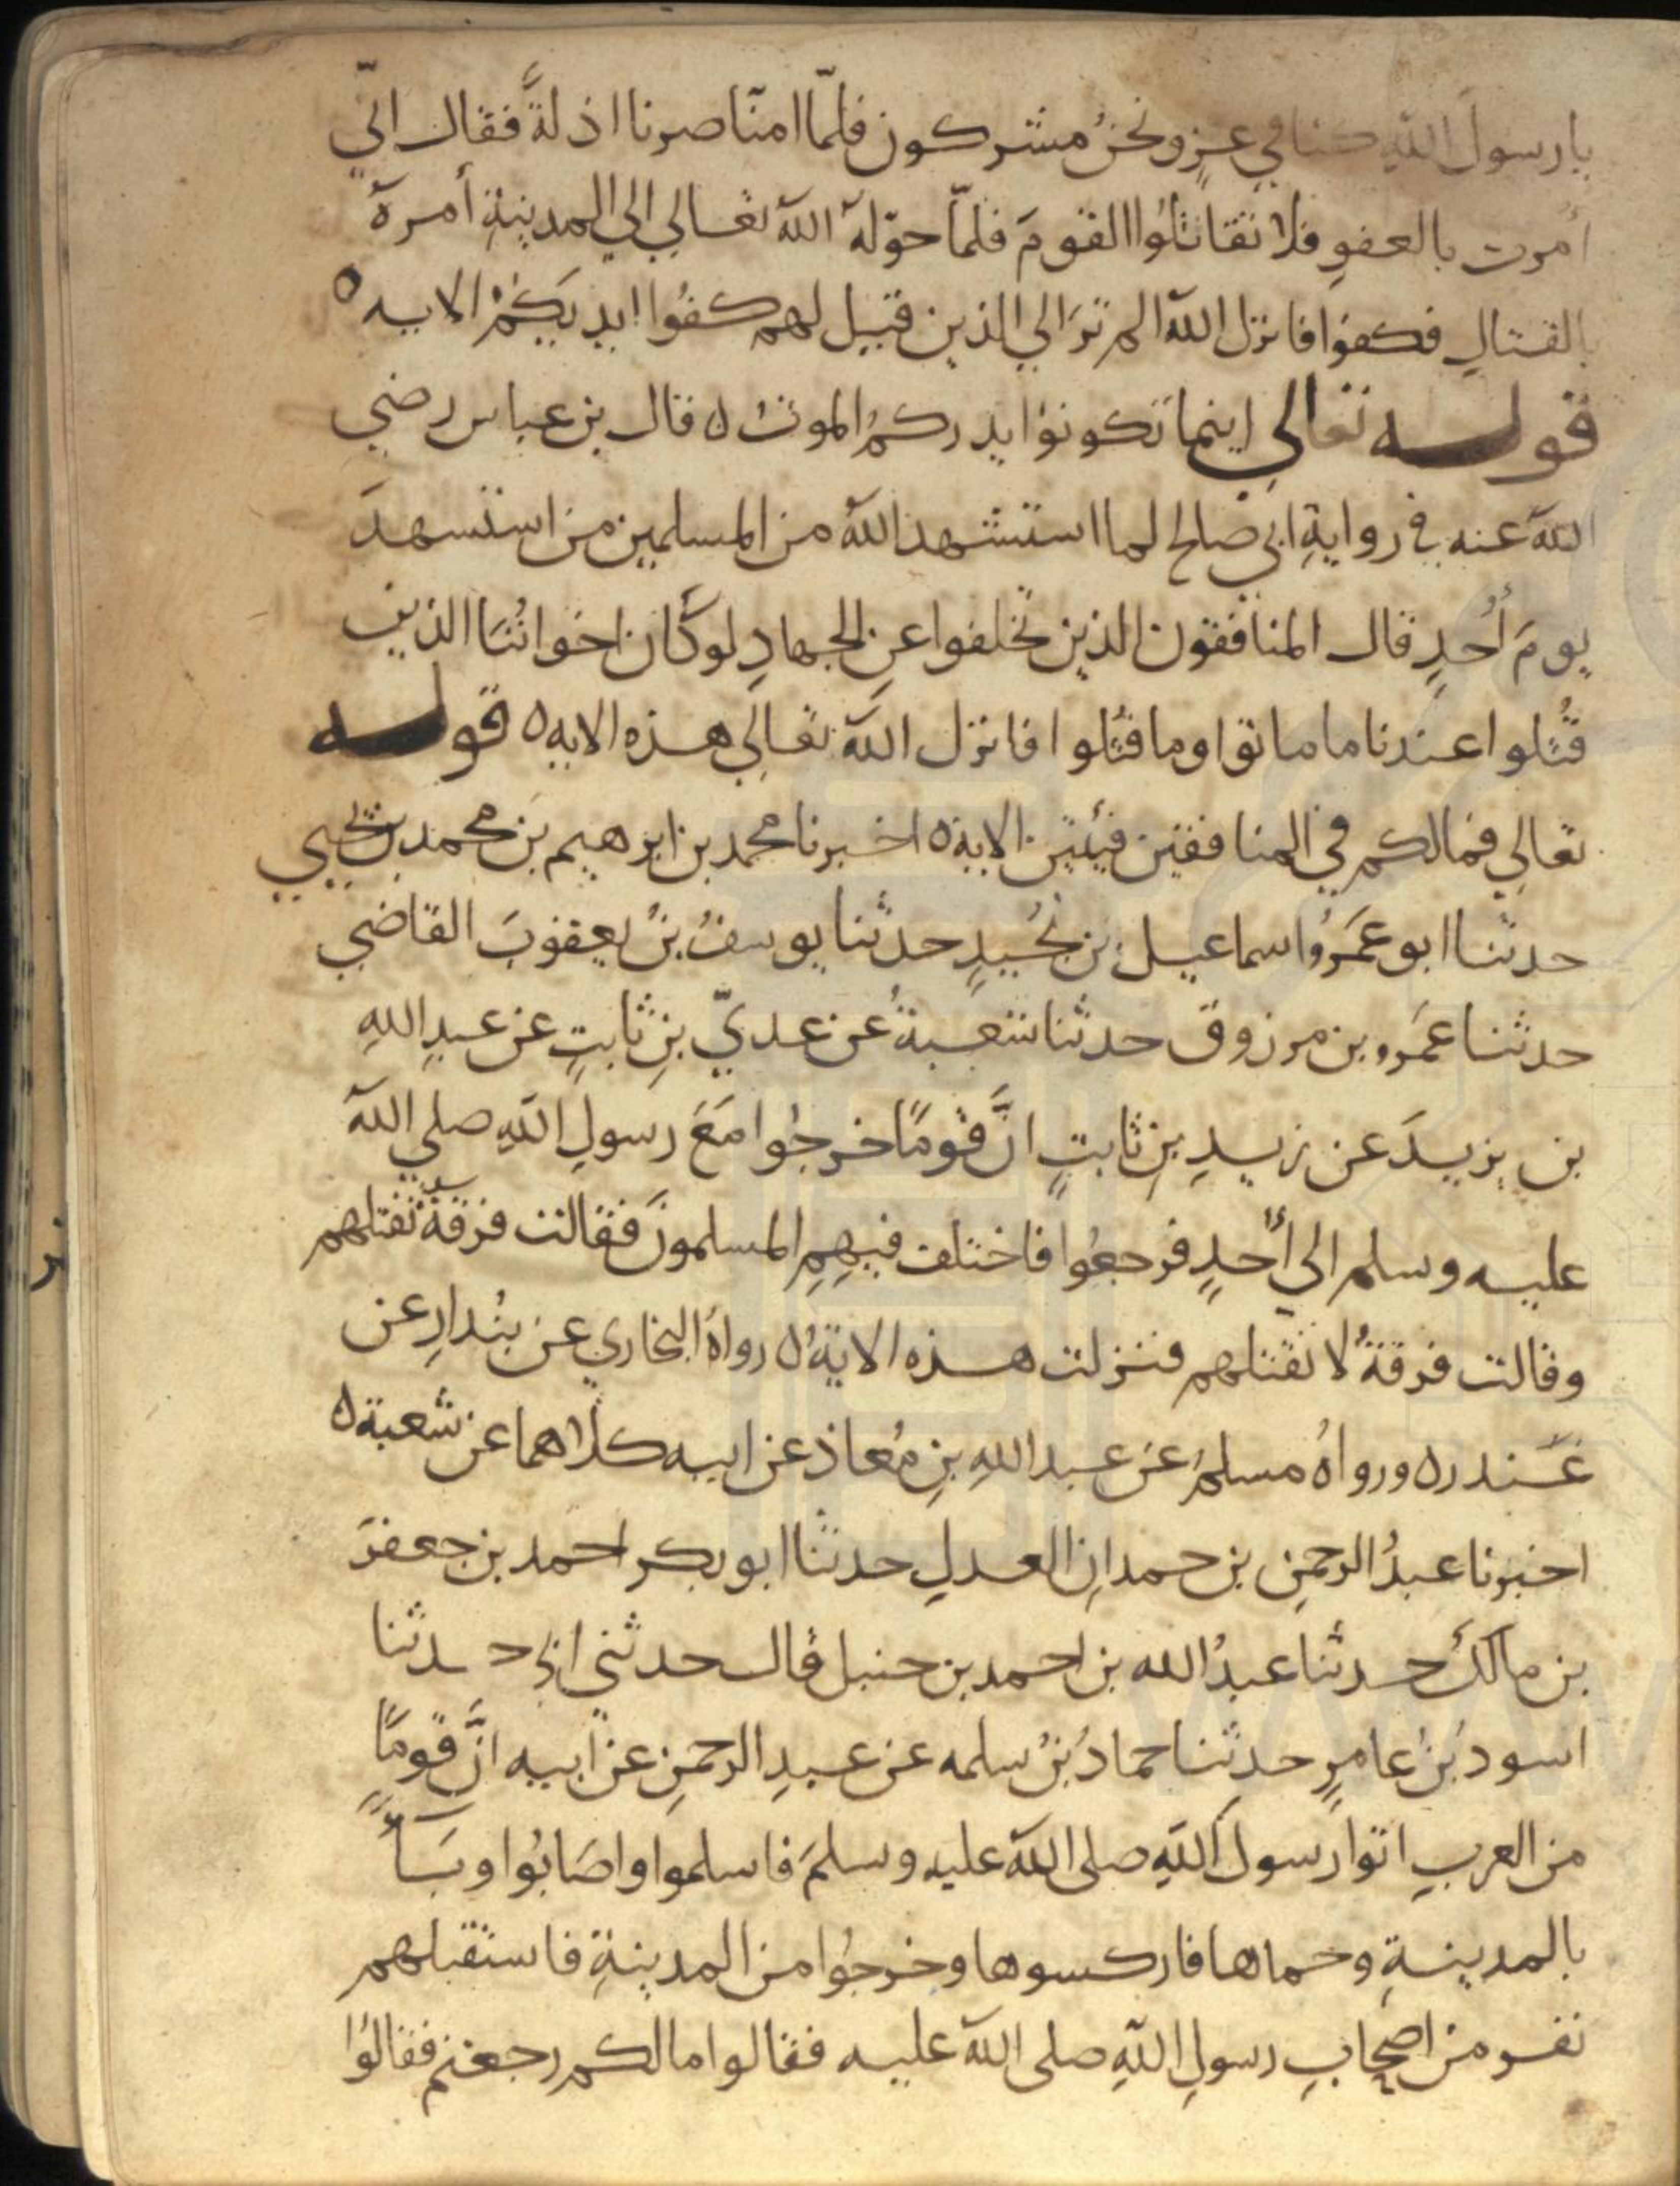 يا رسولَ اللهِ كنا في عزٍ ونحنُ مشركون فلمّا امنّا صرنا اذلةً فقال انّي
اُمرت بالعفوِ فلا تقاتلُوا القومَ فلمّا حوّلهُ اللهُ تعالي الي المدينةِ أمرهُ
بالقتالِ فكفوا فانزل اللهُ الم ترَ الي الذين قيل لهم كفُوا ايديكُمْ الايه ه
قوله تعالي اينما تكونوا يدرككمُ الموتُ ه قال بن عباس رضي
اللهُ عنه في روايةِ ابي صالح لما استشهد اللهُ من المسلمين من استشهدَ
يومَ اُحدٍ قال المنافقون الذين تخلفوا عنِ الجهادِ لو كان اخوانُنا الذين
قُتلوا عندنا ما ماتوا وما قُتلوا فانزل اللهُ تعالي هذه الايه ه قوله
تعالي فمالكم في المنافقين فئتين الاية ه اخبرنا محمد بن ابرهيم بن محمد بن يحيي
حدثنا ابو عَمرُو اسماعيل بن نجُيدٍ حدثنا يوسفُ بنُ يعقوبَ القاضي
حدثنا عَمرو بن مرزوق حدثنا شعبةُ عن عديّ بنِ ثابتٍ عن عبدِ اللهِ
بن يزيدَ عن زيدِ بنِ ثابتٍ انَّ قومًا خرجُوا مَعَ رسولِ اللهِ صلي اللهُ
عليه وسلم الي أُحدٍ فرجعُوا فاختلف فيهِمِ المسلمونَ فقالت فرقةٌ نقتلهم
وقالت فرقةٌ لا نقتلهم فنزلت هذه الايةُ ه رواهُ البخاري عن بُندارٍ عن
غُندر ه ورواهُ مسلمٌ عن عبد اللهِ بنِ مُعاذ عن ابيه كلاهما عن شعبة ه
اخبرنا عبدُ الرحمنِ بن حمدانِ العدلِ حدثنا ابو بكر احمد بن جعفرَ
بن مالكٍ حدثنا عبدُ الله بن احمد بن حنبل قال حدثني ابي حدثنا
اسودُ بنُ عامرٍ حدثنا حمادُ بنُ سلمه عن عبدِ الرحمنِ عن ابيه انَّ قومًا
من العربِ اتوا رسولَ اللهِ صلى اللهُ عليه وسلمَ فاسلموا واصَابُوا وبَاً
بالمدينةِ وحماها فاركسوها وخرجُوا من المدينةِ فاستقبلهم
نفر من اصحابِ رسولِ اللهِ صلى اللهُ عليه فقالوا مالكم رجعتم فقالُوا